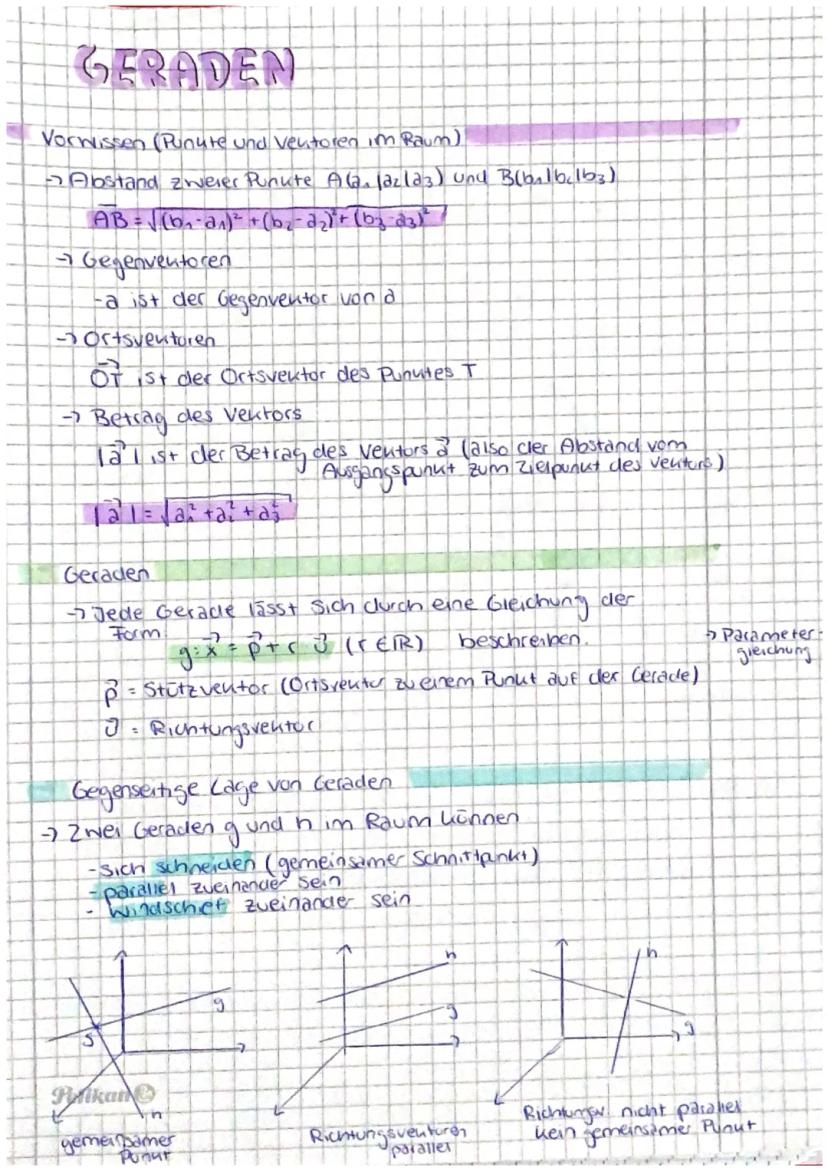 GERADEN
Vorwissen (Punkte und Vektoren im Raum)
→ Abstand zweier Punkte A(a₁|a₂|a₃) und B(b₁|b₂|b₃)
AB = √(b₁-a₁)² + (b₂-a₂)² + (b₃-a₃)²
→ Gegenvektoren
-a ist der Gegenvektor von a
→ Ortsvektoren
O⃗T⃗ ist der Ortsvektor des Punktes T
→ Betrag des Vektors
|a⃗| ist der Betrag des Vektors a⃗ (also der Abstand vom
Ausgangspunkt zum Zielpunkt des Vektors)
|a⃗| = √a₁² + a₂² + a₃²
Geraden
→ Jede Gerade lässt sich durch eine Gleichung der
Form
g: x⃗ = p⃗ + r · u⃗ (r ∈ ℝ) beschreiben. → Parameter-
gleichung
p⃗ = Stützvektor (Ortsvektor zu einem Punkt auf der Gerade)
u⃗ = Richtungsvektor
Gegenseitige Lage von Geraden
→ Zwei Geraden g und h im Raum können
- sich schneiden (gemeinsamer Schnittpunkt)
- parallel zueinander sein
- windschief zueinander sein
g
S
h
h
g
h
g
Pelikan
gemeinsamer
Punkt
Richtungsvektoren
parallel
Richtungsv. nicht parallel
kein gemeinsamer Punkt